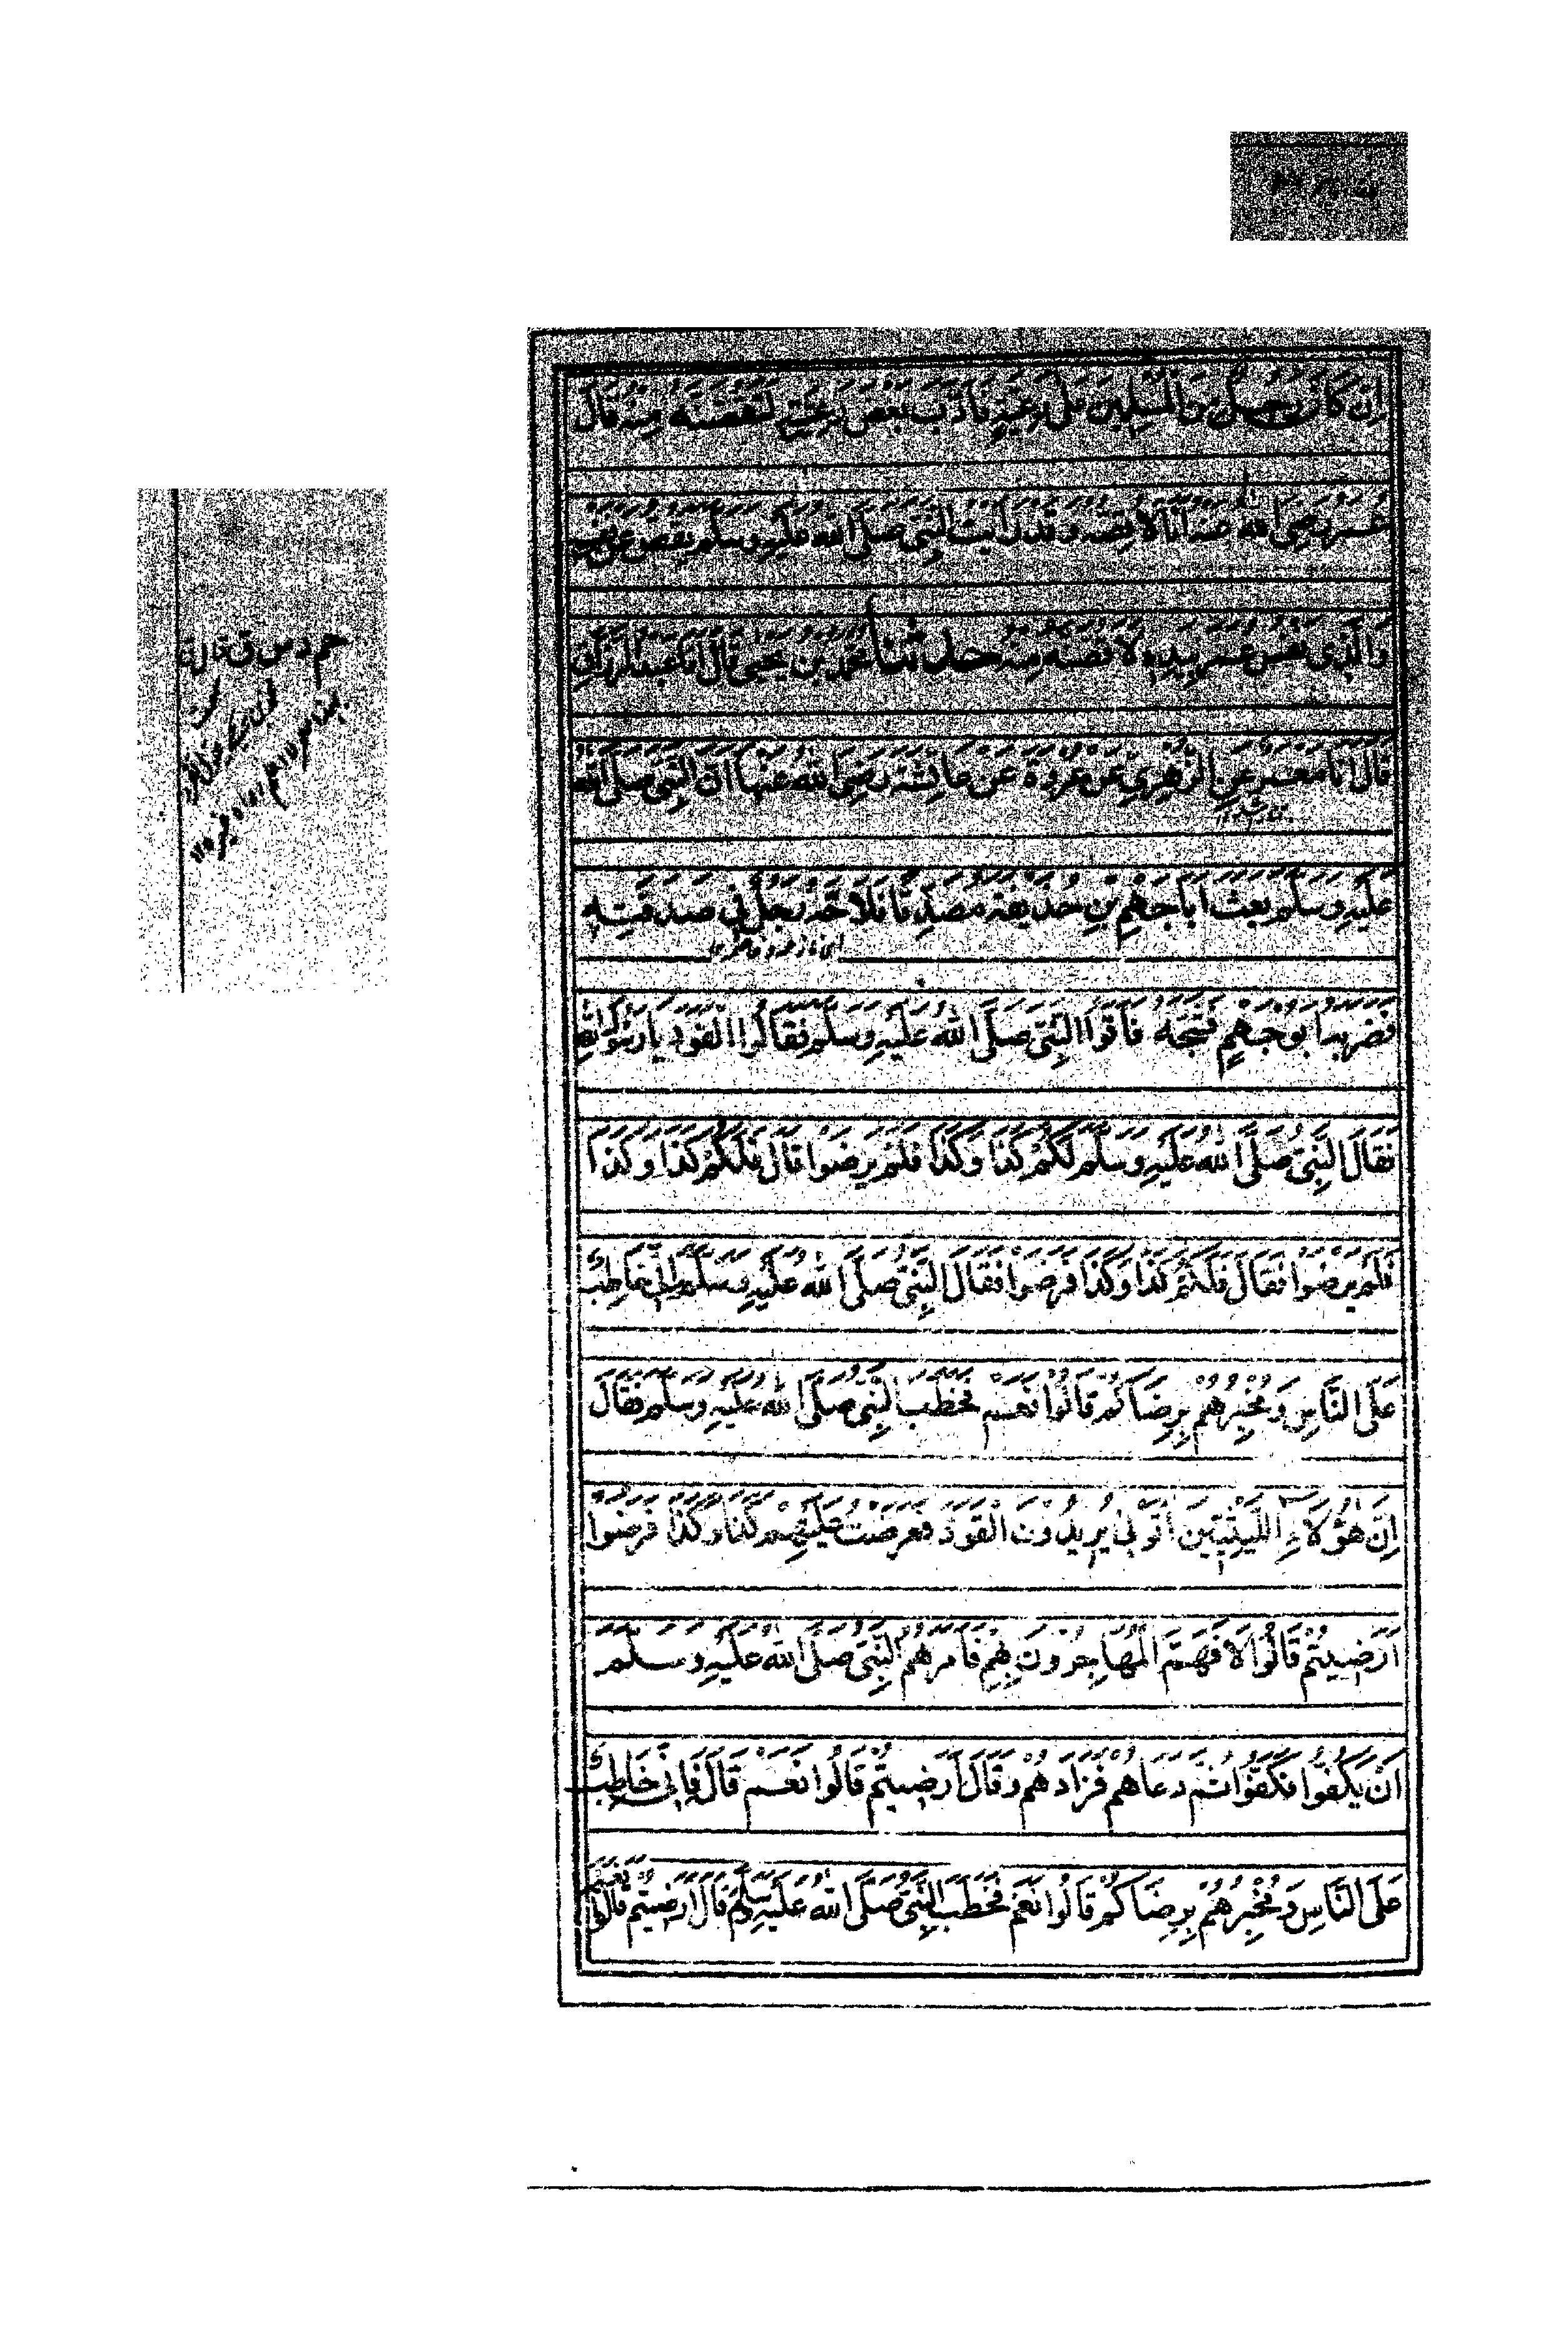 اِنْ كَانَ رَجُلٌ مِنَ الْمُسْلِمِينَ عَلَى رَعِيَّةٍ فَاَدَّبَ بَعْضَ رَعِيَّتِهِ لَتَقُصَّنَّهُ مِنْهُ قَالَ
عُمَرُ رَضِيَ اللهُ عَنْهُ اَنَا لَا اَقُصُّهُ وَقَدْ رَاَيْتُ النَّبِيَّ صَلَّى اللهُ عَلَيْهِ وَسَلَّمَ يَقُصُّ عَنْ نَفْسِهِ
وَالَّذِي نَفْسُ عُمَرَ بِيَدِهِ لَاَقُصَّنَّهُ مِنْهُ حدثنا مُحَمَّدُ بْنُ يَحْيَى قَالَ اَنَا عَبْدُ الرَّزَّاقِ
قَالَ اَنَا مَعْمَرٌ عَنِ الزُّهْرِيِّ عَنْ عُرْوَةَ عَنْ عَائِشَةَ رَضِيَ اللهُ عَنْهَا اَنَّ النَّبِيَّ صَلَّى اللهُ
عَلَيْهِ وَسَلَّمَ بَعَثَ اَبَا جَهْمِ بْنِ حُذَيْفَةَ مُصَدِّقًا فَلَاحَّهُ رَجُلٌ فِي صَدَقَتِهِ
فَضَرَبَهُ اَبُو جَهْمٍ فَشَجَّهُ فَاَتَوُا النَّبِيَّ صَلَّى اللهُ عَلَيْهِ وَسَلَّمَ فَقَالُوا الْقَوَدَ يَا رَسُولَ اللهِ
فَقَالَ النَّبِيُّ صَلَّى اللهُ عَلَيْهِ وَسَلَّمَ لَكُمْ كَذَا وَكَذَا فَلَمْ يَرْضَوْا قَالَ فَلَكُمْ كَذَا وَكَذَا
فَلَمْ يَرْضَوْا فَقَالَ فَلَكُمْ كَذَا وَكَذَا فَرَضَوْا فَقَالَ النَّبِيُّ صَلَّى اللهُ عَلَيْهِ وَسَلَّمَ اِنِّي خَاطِبٌ
عَلَى النَّاسِ وَمُخْبِرُهُمْ بِرِضَاكُمْ قَالُوا نَعَمْ فَخَطَبَ النَّبِيُّ صَلَّى اللهُ عَلَيْهِ وَسَلَّمَ فَقَالَ
اِنَّ هٰؤُلَاءِ اللَّيْثِيِّينَ اَتَوْنِي يُرِيدُونَ الْقَوَدَ فَعَرَضْتُ عَلَيْهِمْ كَذَا وَكَذَا فَرَضَوْا
اَرَضِيتُمْ قَالُوا لَا فَهَمَّ الْمُهَاجِرُونَ بِهِمْ فَاَمَرَهُمُ النَّبِيُّ صَلَّى اللهُ عَلَيْهِ وَسَلَّمَ
اَنْ يَكُفُّوا فَكَفُّوا ثُمَّ دَعَاهُمْ فَزَادَهُمْ وَقَالَ اَرَضِيتُمْ قَالُوا نَعَمْ قَالَ فَاِنِّي خَاطِبٌ
عَلَى النَّاسِ وَمُخْبِرُهُمْ بِرِضَاكُمْ قَالُوا نَعَمْ فَخَطَبَ النَّبِيُّ صَلَّى اللهُ عَلَيْهِ وَسَلَّمَ قَالَ اَرَضِيتُمْ قَالُوا نَعَمْ
حم د س ق